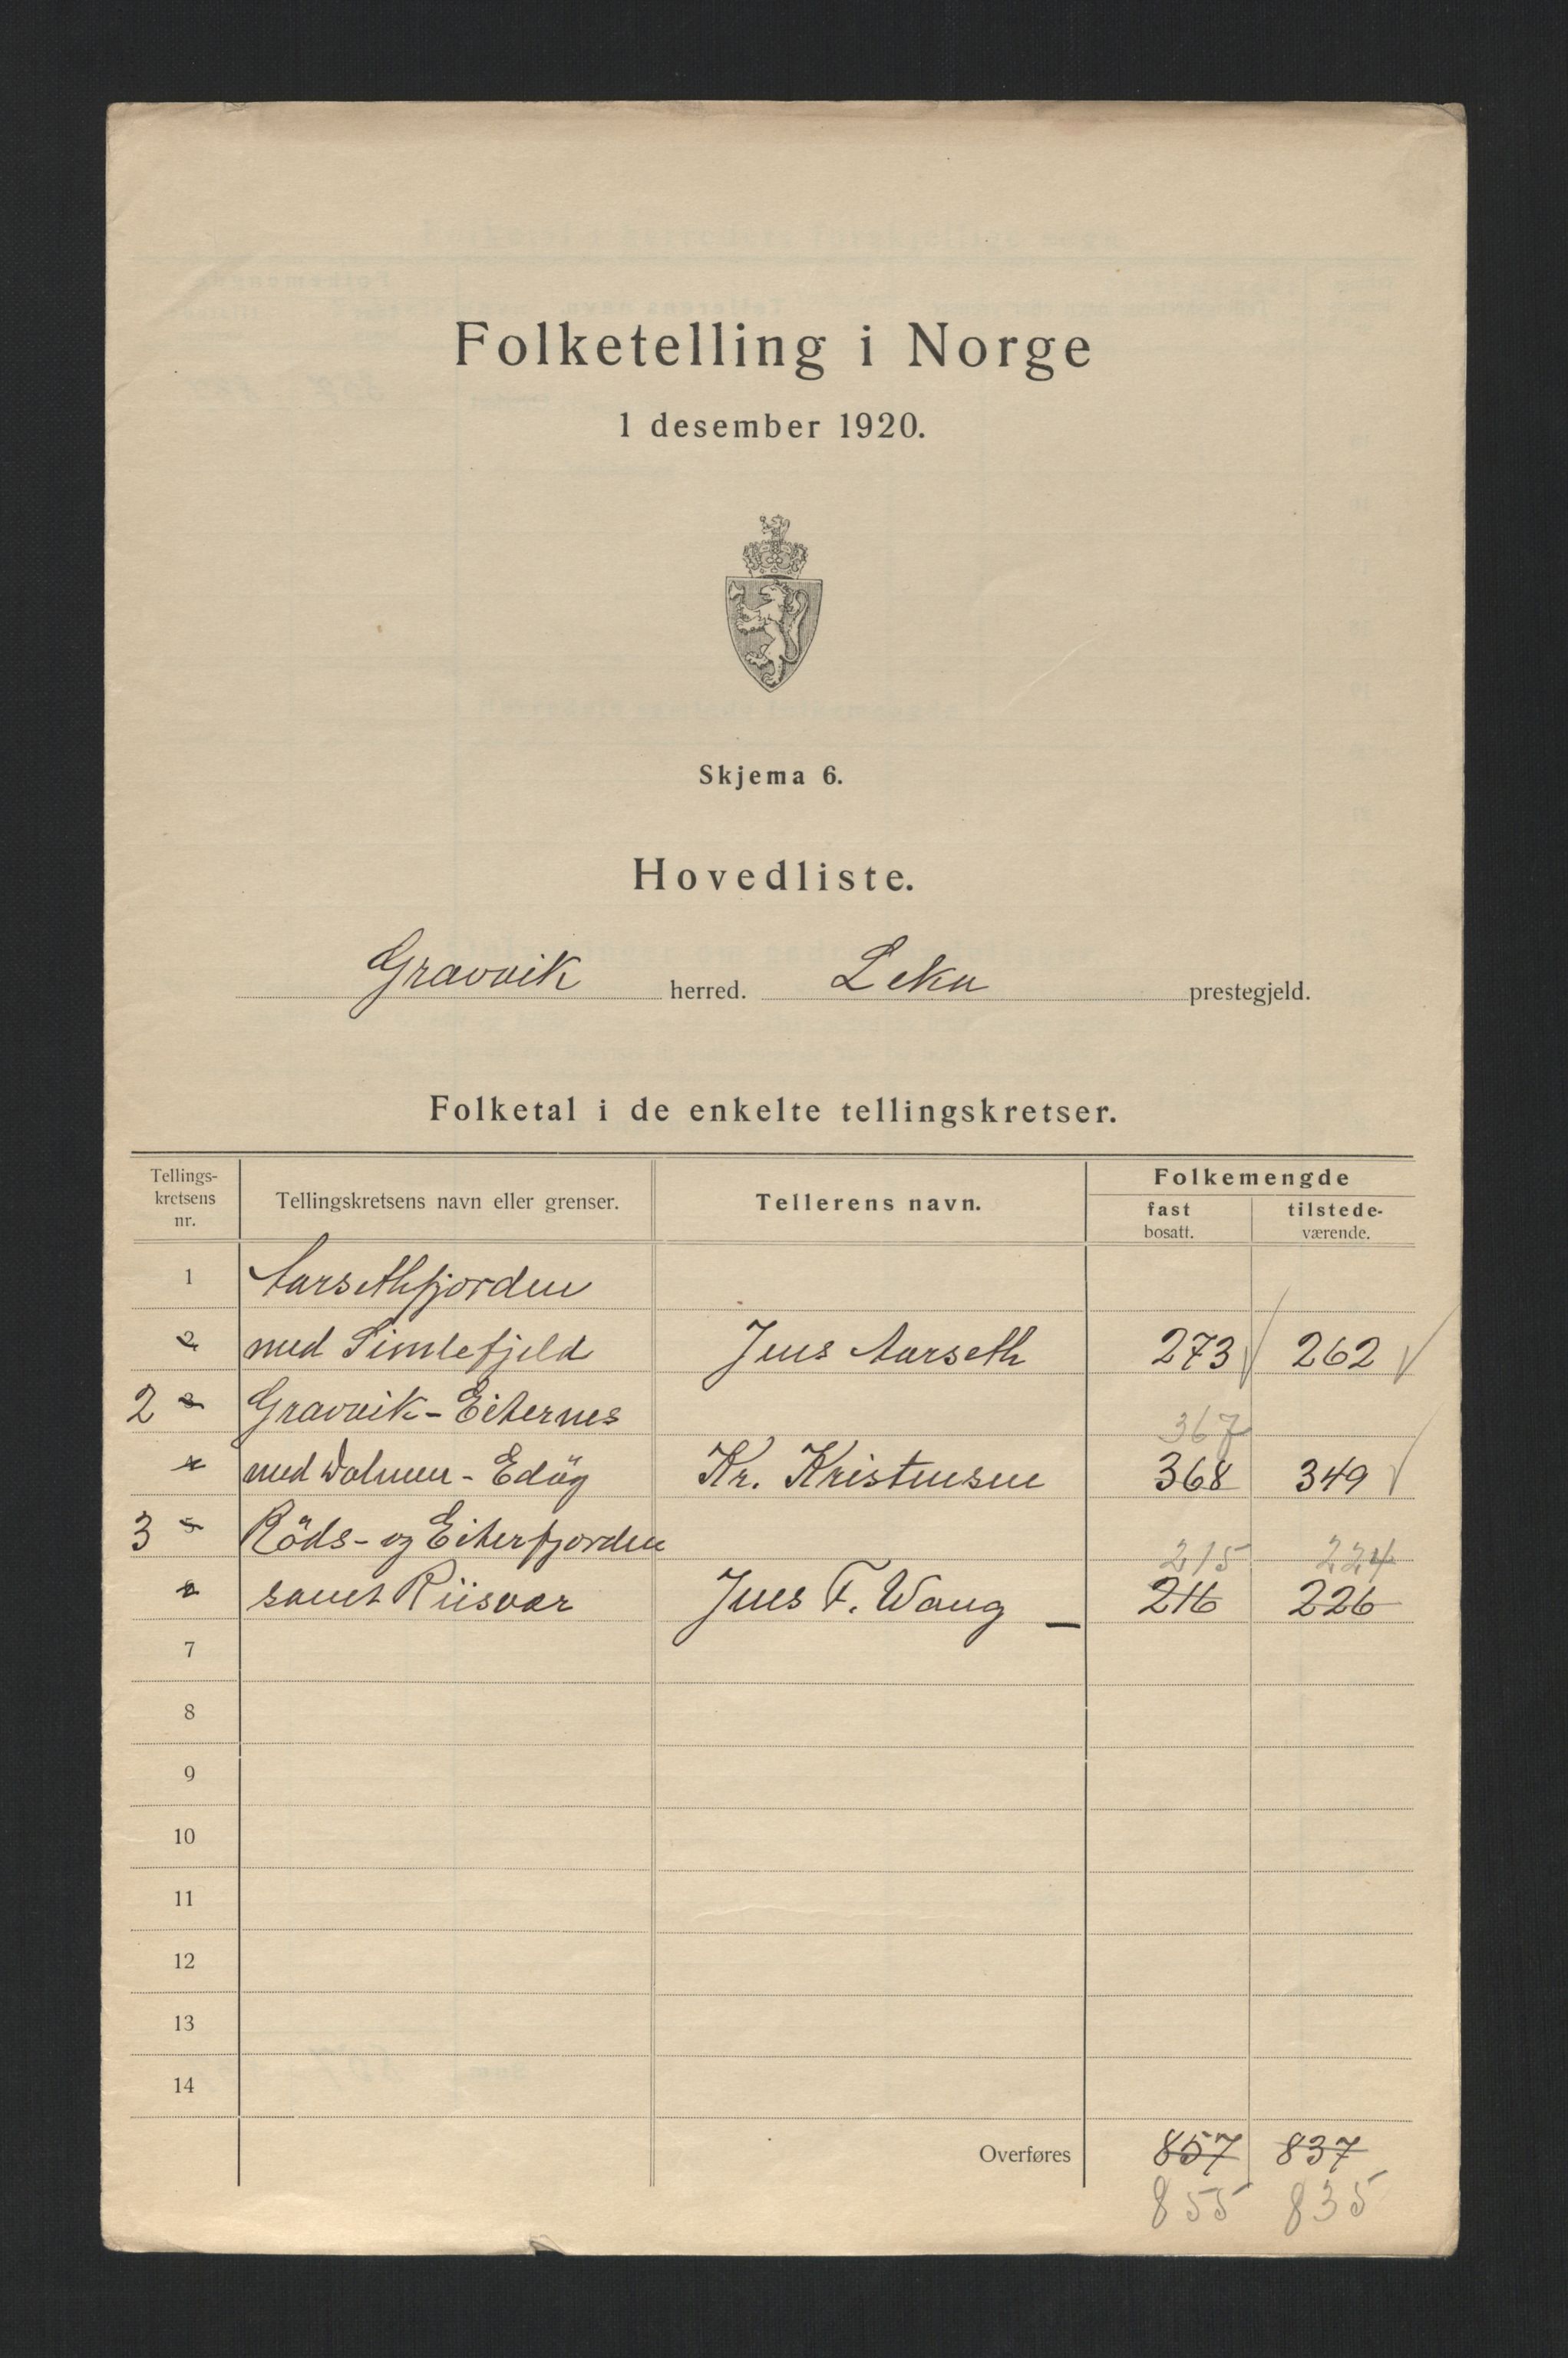 Folketelling i Norge
1 desember 1920.
Skjema 6.
Hovedliste.
Gravvik herred. Leka prestegjeld.
Folketal i de enkelte tellingskretser.
Tellings-
kretsens
nr.
Tellingskretsens navn eller grenser.
Tellerens navn.
Folkemengde
fast
bosatt.
tilstede-
værende.
1 Aarsethfjorden
2 med Simlefjeld Jens Aarseth 273 262
2 3 Gravvik-Eiternes
367
4 med Dolmen-Edög Kr. Kristensen 368 349
3 5 Röds- og Eiterfjorden
215 224
6 samt Riisvær Jens F. Waug 216 226
7
8
9
10
11
12
13
14
Overføres 857 837
855 835